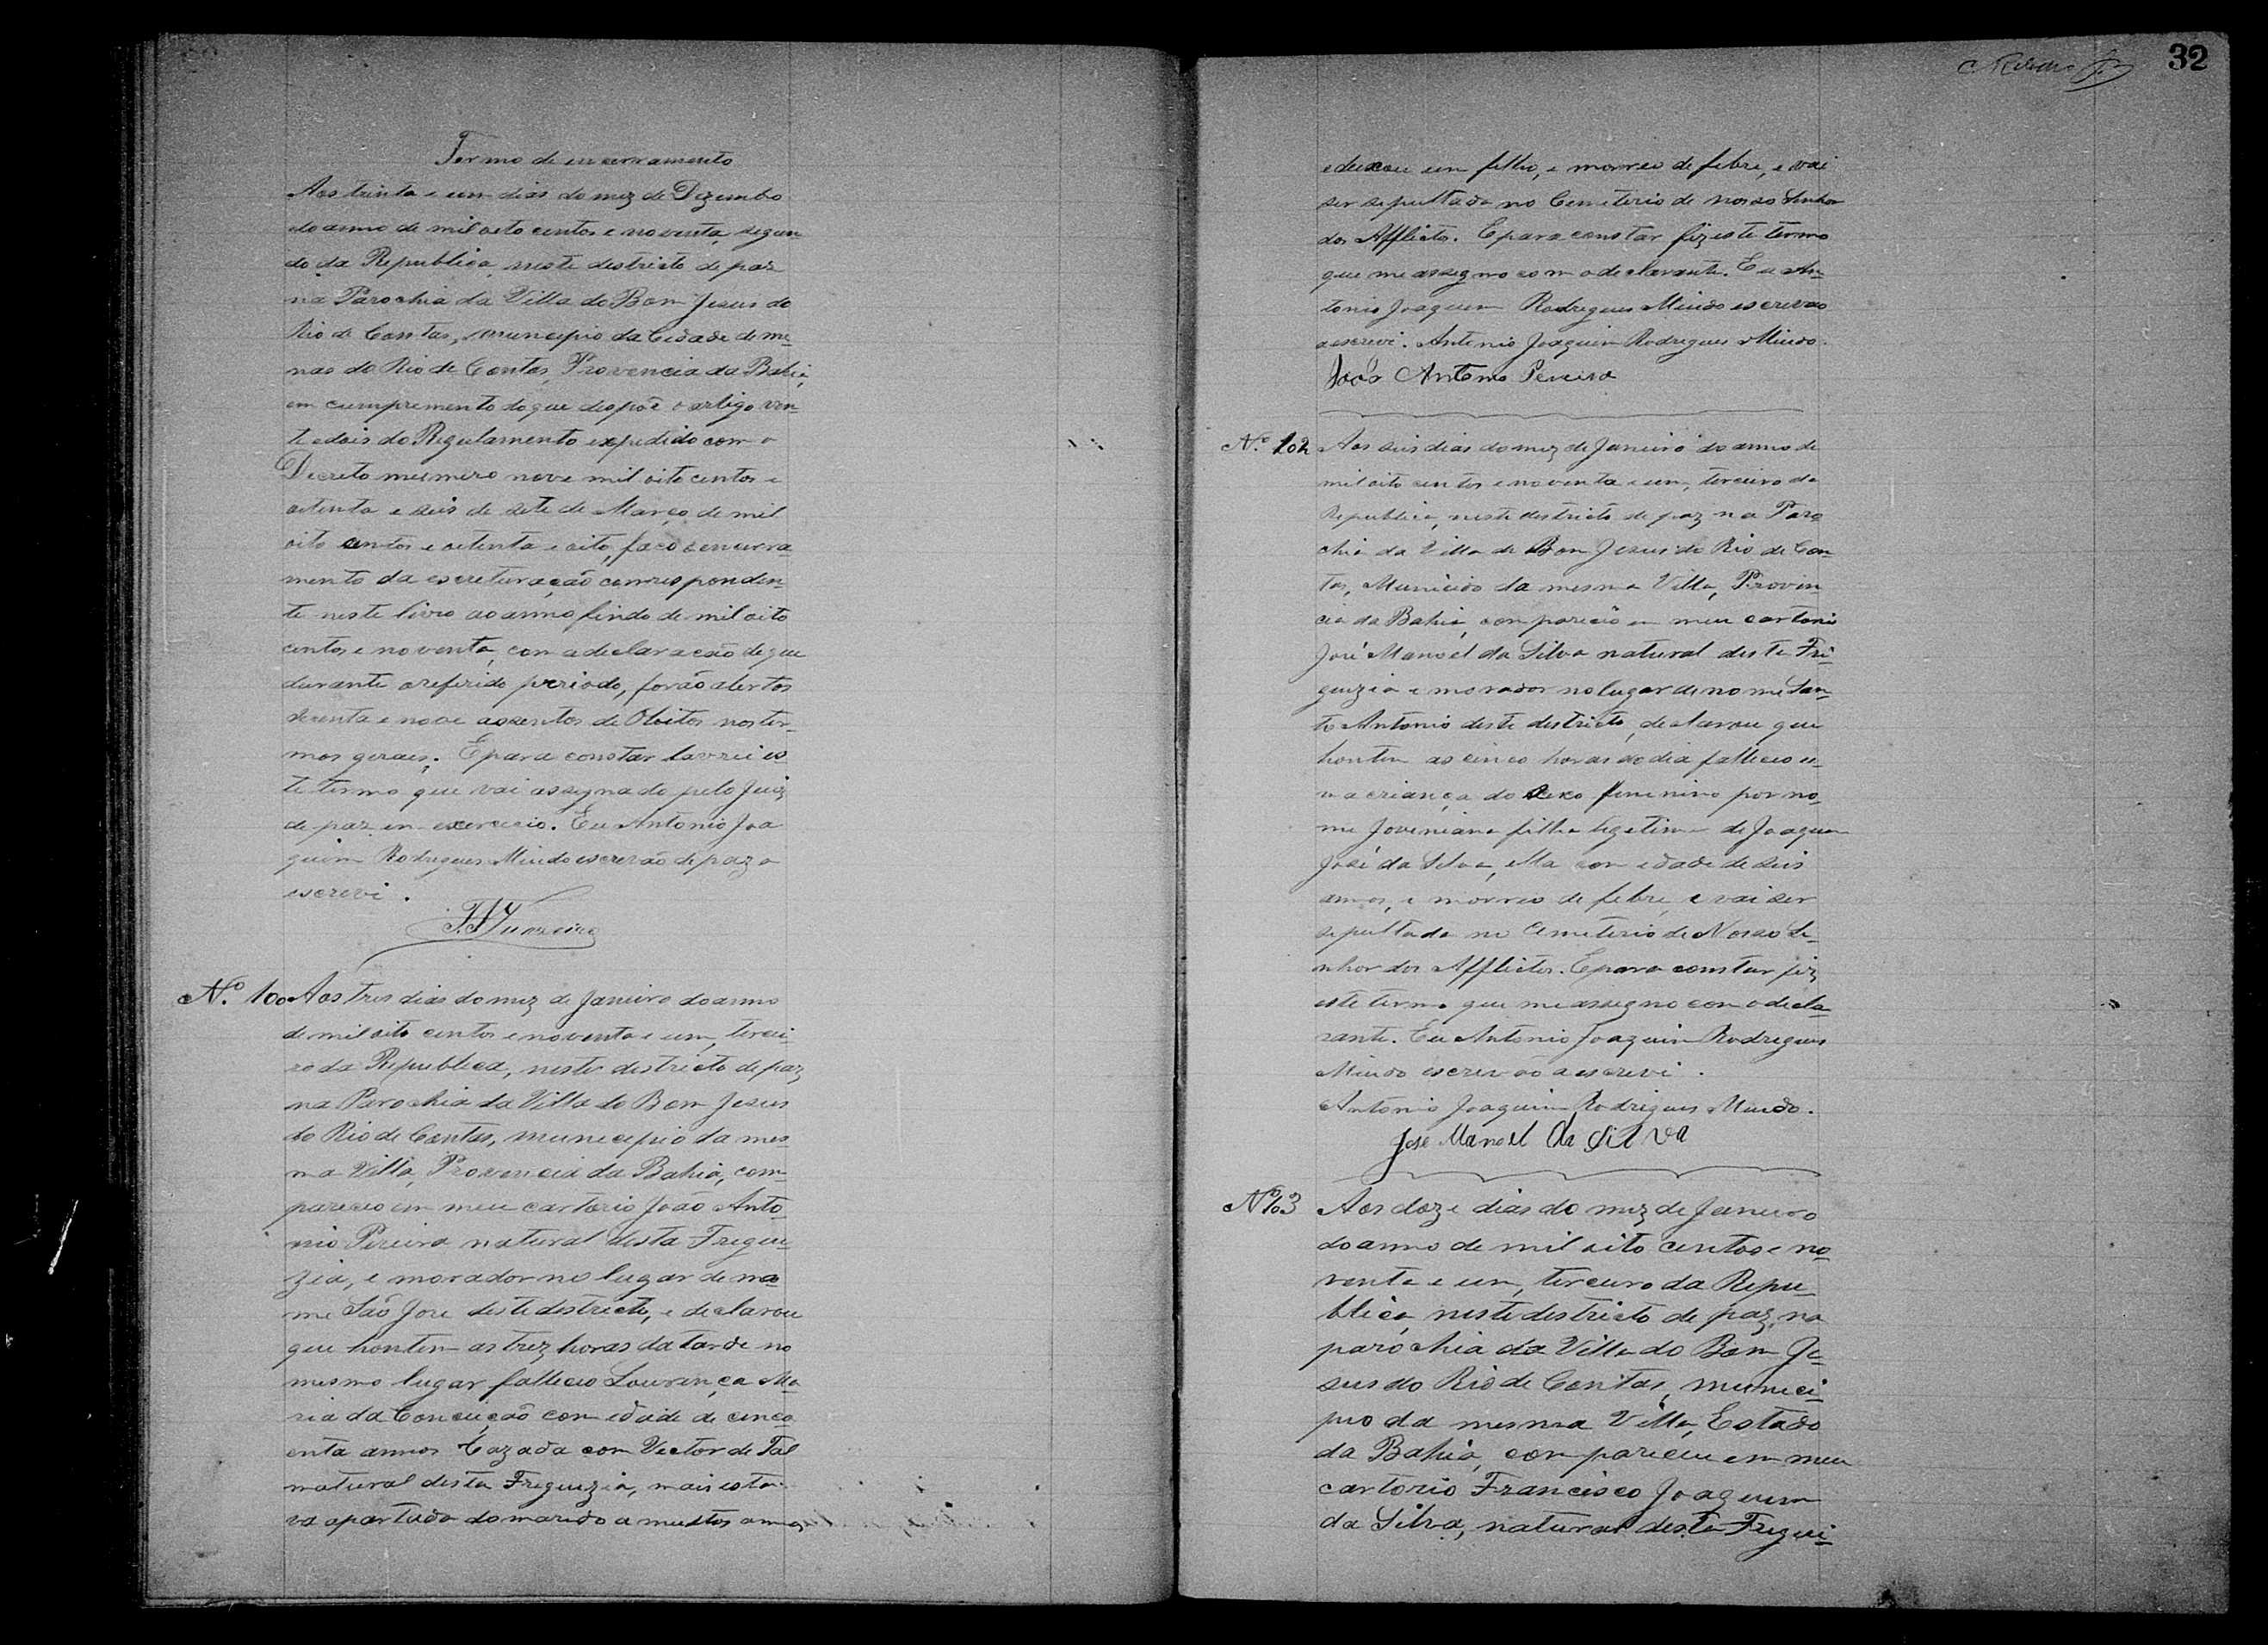 Termo de encerramento
Aos trinta e um dias do mez de Dezembo
do anno de mil oito centos e noventa, segun
do da Republica, neste destricto de paz
na Parochia da Villa do Bom Jesus do
Rio de Contas, municipio da Cidade de mi
nas do Rio de Contas, Provencia da Bahia,
em cumpremento do que despõe o artigo vin
te e dois do Regulamento expedido com o
Decreto numero nove mil oito centos e
oitenta e seis de sete de Março de mil
oito centos e oitenta e oito, faço o encerra
mento da escreturação correspondem
te neste livro ao anno findo de mil oito
centos e noventa, com a declaração de que
durante o referido periodo, forão abertos
e nove assentos de Obitos nos ter
mos geraes. E para constar lavrei es
te termo que vai assignado pelo Juiz
de paz em exercicio. Eu Antonio Joa
quim Rodrigues Miudo escrevão de paz o
escrevi.
Nº 100 Aos tres dias do mez de Janeiro do anno
de mil oito centos e noventa e um, tercei
ro da Republica, neste destricto de paz
na Parochia da Villa do Bom Jesus
do Rio de Contas, municipio da mes
ma Villa, Provencia da Bahia, com
pareceo em meu cartorio João Anto
nio Pereira natural desta Fregue
zia, e morador no lugar de no
me São Jose deste destricto, e declarou
que hontem as trez horas da tarde no
mesmo lugar falleceo Lourença Ma
ria da Conceição com edade de cinco
enta annos Cazada com Vector de Tal
natural desta Freguezia, mais esta
va apartada do marido a muitos annos
32
e deixou um filho, e morreo de febre, e vai
ser sepultada no Cemeterio de nosso Senhor
dos Afflictos. E para constar fiz este termo
que me assegno com o declarante. Eu An
tonio Joaquim Rodrigues Miudo escrevão
o escrevi. Antonio Joaquim Rodrigues Miudo.
João Antonio Pereira
Nº 102 Aos seis dias do mez de Janeiro do anno de
mil oito centos e noventa e um, terceiro da
Republica, neste destricto de paz na Paro
chia da Villa do Bom Jesus do Rio de Con
tas, Municido da mesma Villa, Proven
cia da Bahia, compareceõ em meu cartorio
José Manoel da Silva natural desta Fre
guezia e morador no lugar de nome San
to Antonio deste destricto, declarou que
hontem as cinco horas do dia falleceo u
ma criança do sexo femenino por no
me Joveniana filha legetima de Joaquim
José da Silva, ella com edade de seis
annos, e morreo de febre e vai ser
sepultada no Cemeterio de Nosso Se
nhor dos Afflictos. E para constar fiz
este termo que me assegno com o decla
rante. Eu Antonio Joaquim Rodrigues
Miudo escrevão o escrevi.
Antonio Joaquim Rodrigues Miudo.
Jose Manoel da Silva
Nº 103 Aos doze dias do mez de Janeiro
do anno de mil oito centos e no
venta e um, terceiro da Repu
blica, neste destricto de paz, na
parochia da Villa do Bom Je
sus do Rio de Contas, munici
pio da mesma Villa, Estado
da Bahia, compareceu em meu
cartorio Francisco Joaquim
da Silva, natural desta Fregui